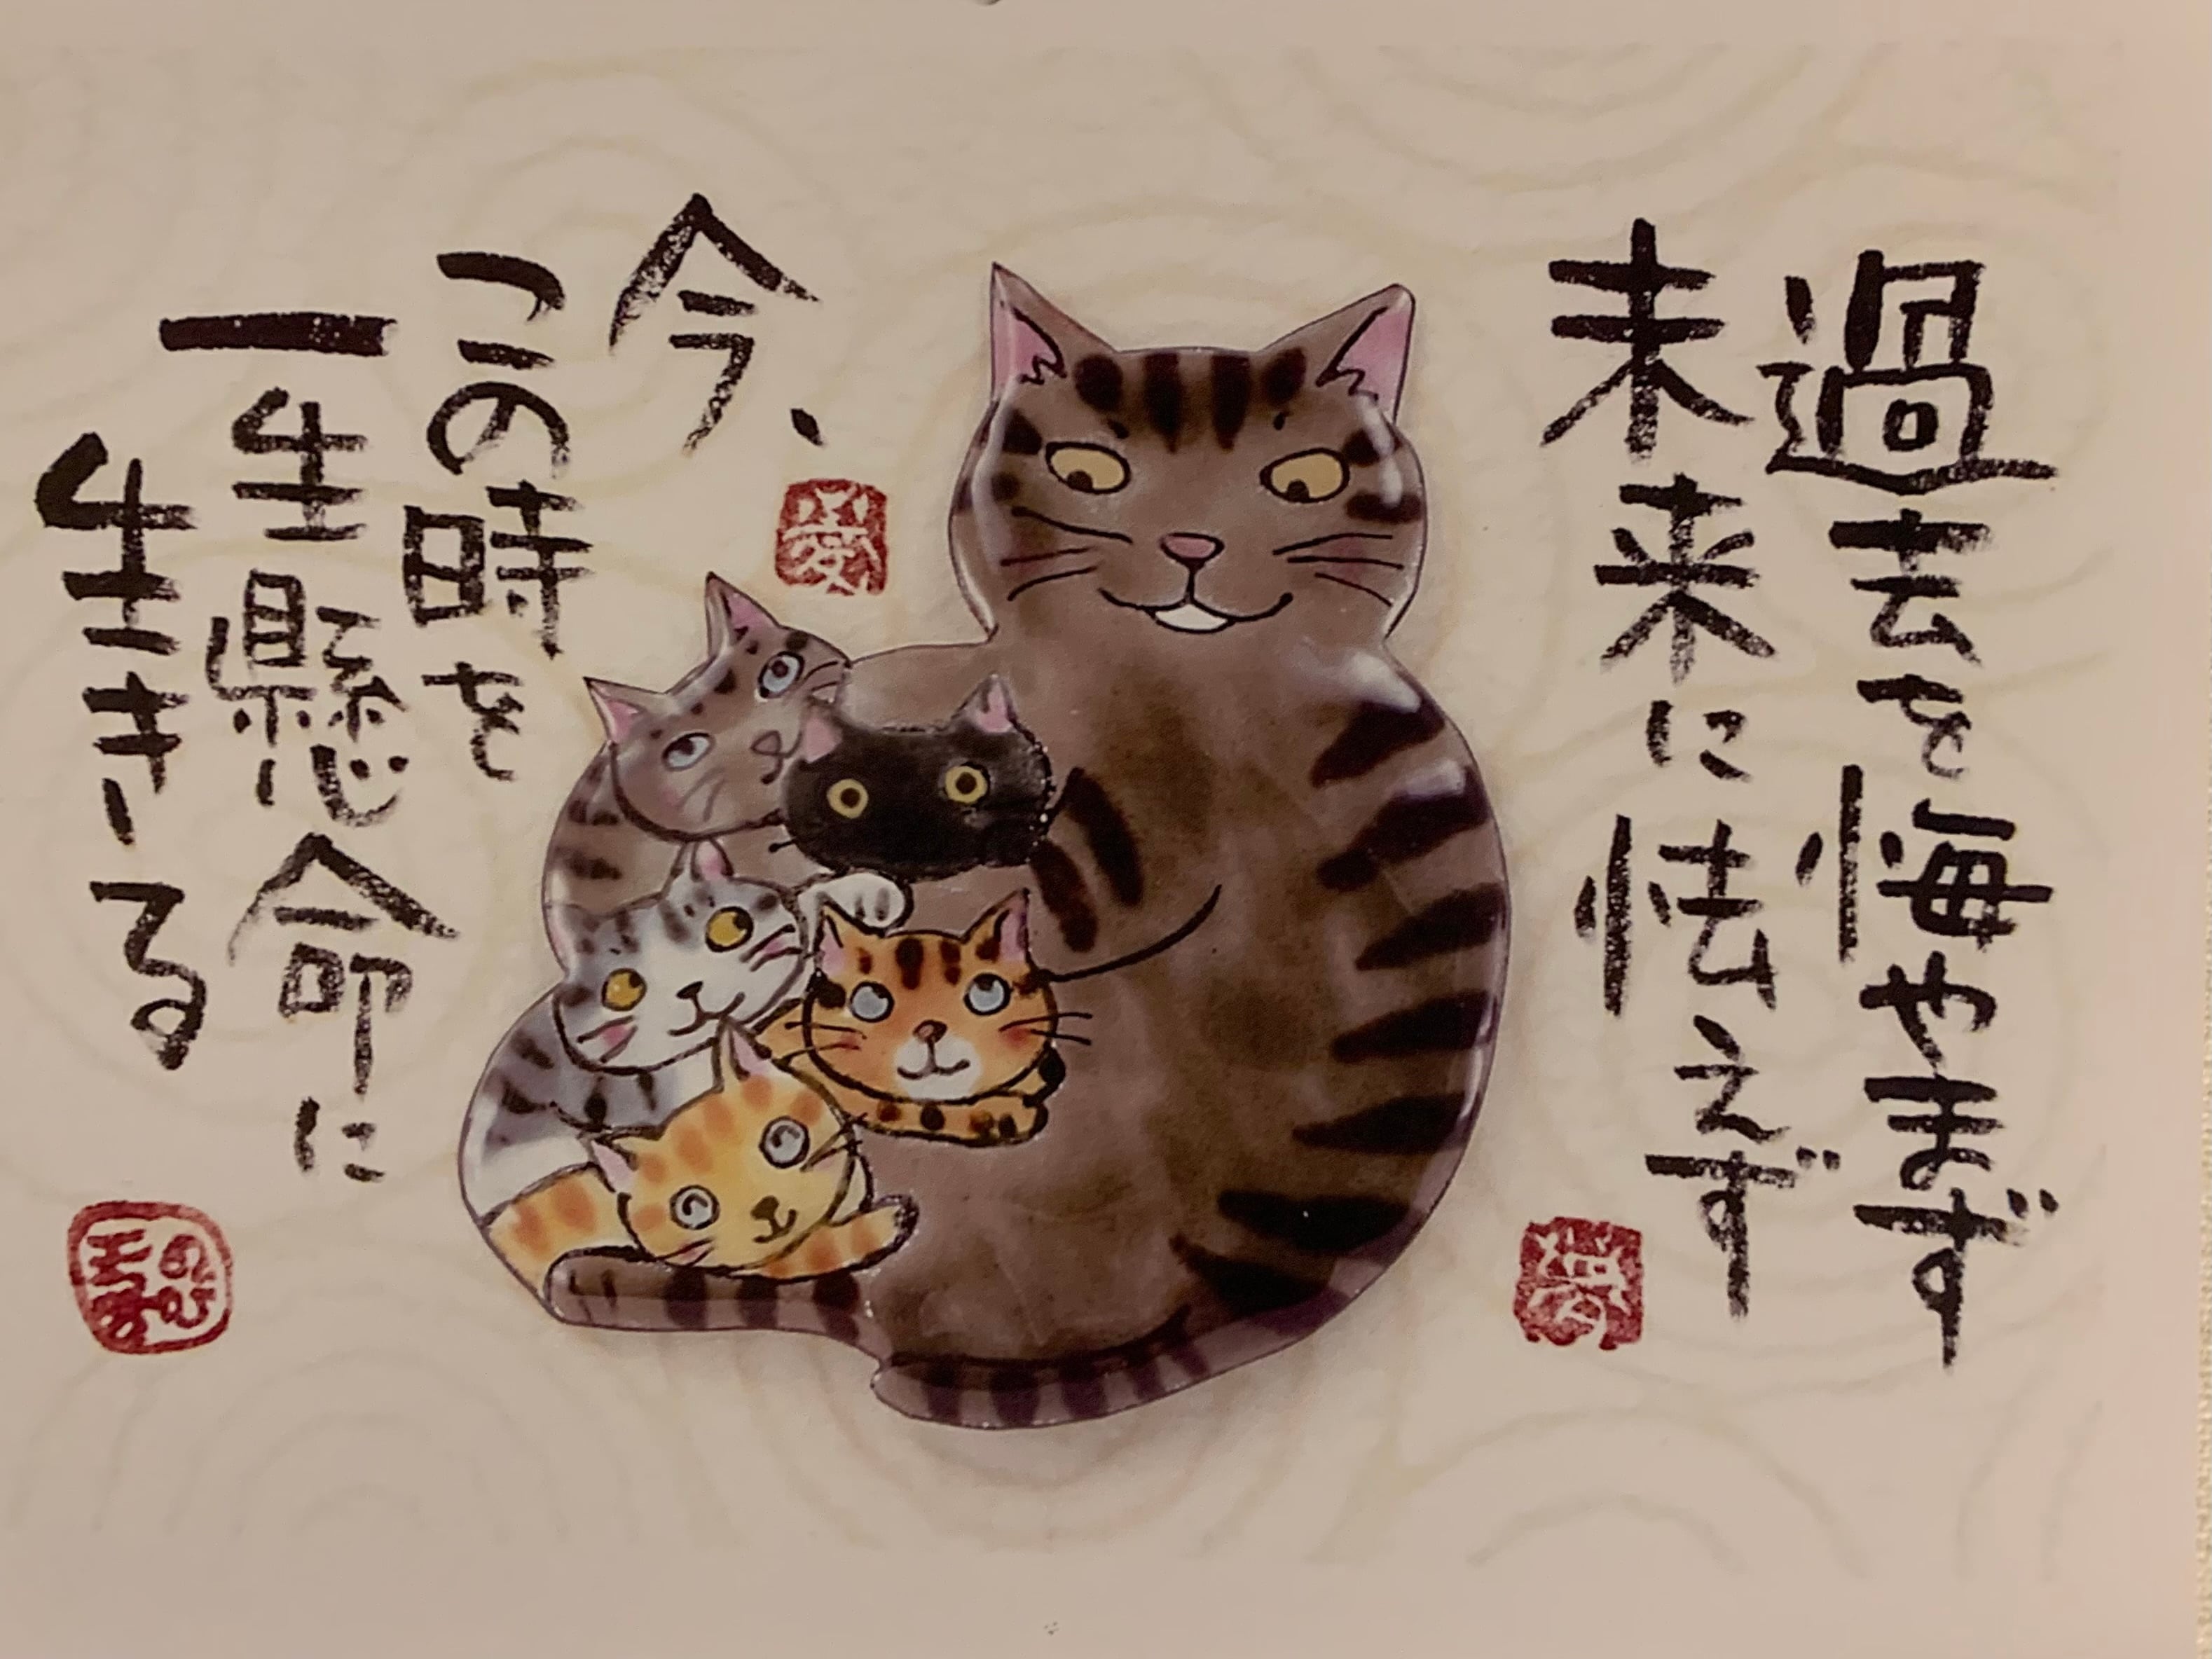 過去を悔やまず
未来に怯えず
夢
今、
愛
この時を
一生懸命に
生きーる